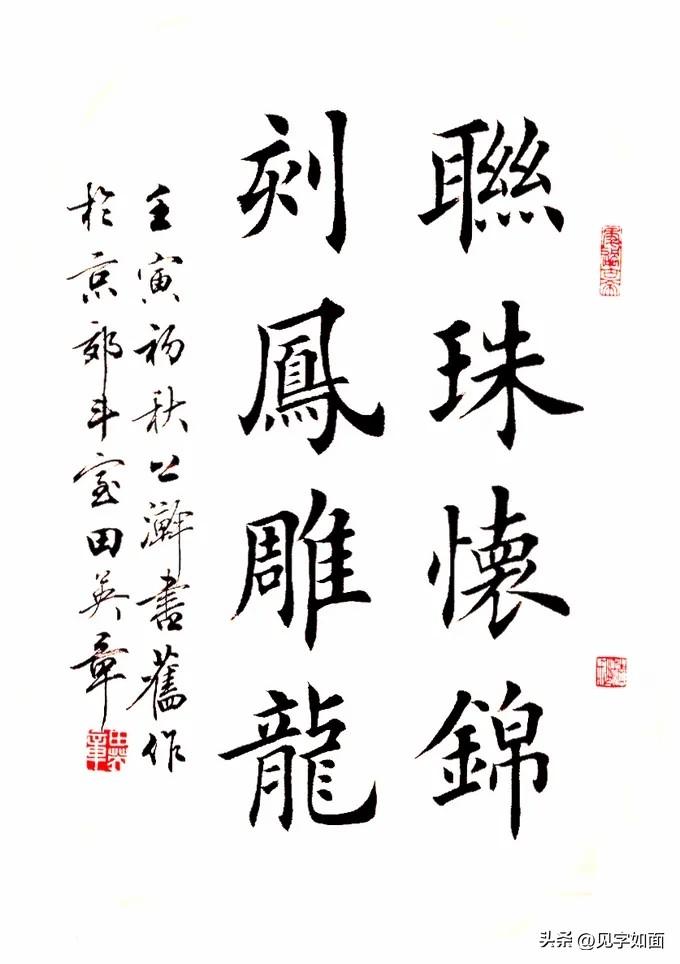 聯珠懷錦
刻鳳雕龍
壬寅初秋公瀚書舊作
於京郊斗室田英章
田英章
头条 @见字如面